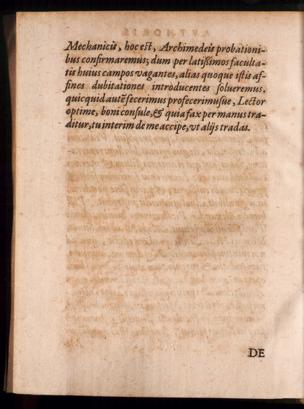 Mechanicis, hoc est, Archimedeis probationi-
bus confirmaremus; dum per latißimos faculta-
tis huius campos vagantes, alias quoque istis af-
fines dubitationes introducentes solueremus,
quicquid autē fecerimus profecerimusue, Lector
optime, boni consule, & quia fax per manus tra-
ditur, tu interim de me accipe, vt alijs tradas.
DE